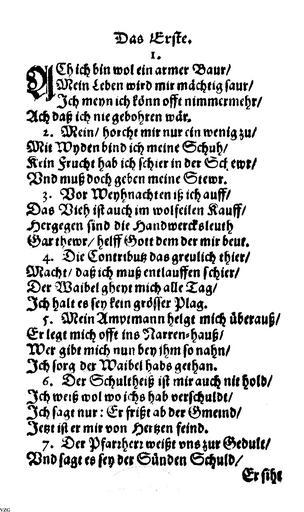 Das Erste.
1.
ACh ich bin wol ein armer Baur/
Mein Leben wird mir mächtig saur/
Ich meyn ich könn offt nimmermehr/
Ach daß ich nie gebohren wär.
2. Mein/ horcht mir nur ein wenig zu/
Mit Wyden bind ich meine Schuh/
Kein Frucht hab ich schier in der Schewr/
Vnd muß doch geben meine Stewr.
3. Vor Weyhnachten iß ich auff/
Das Vieh ist auch im wolfeilen Kauff/
Hergegen sind die Handwercksleuth
Gar thewr/ helff Gott dem der mir beut.
4. Die Contributz das greulich thier/
Macht/ daß ich muß entlauffen schier/
Der Waibel gheyt mich alle Tag/
Ich halt es sey kein grösser Plag.
5. Mein Amptmann helgt mich überauß/
Er legt mich offt ins Narren-hauß/
Wer gibt mich nun bey ihm so nahn/
Ich sorg der Waibel habs gethan.
6. Der Schultheiß ist mir auch nit hold/
Ich weiß wol wo ichs hab verschuldt/
Ich sagt nur: Er frißt ab der Gmeind/
Jetzt ist er mir von Hertzen feind.
7. Der Pfarrherr weißt vns zur Gedult/
Vnd sagt es sey der Sünden Schuld/
Er siht
VZG